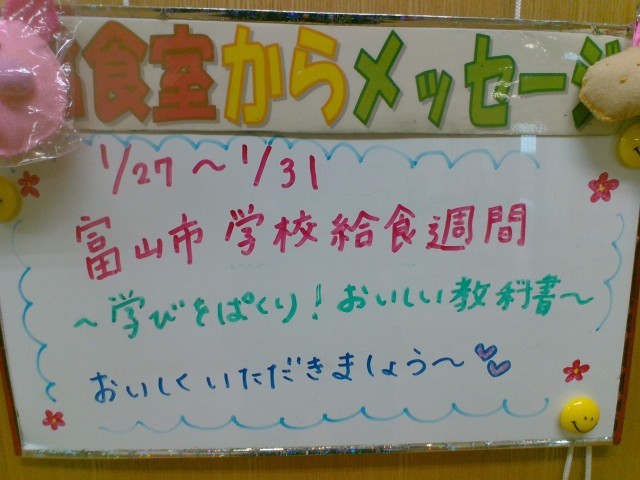 給食室からメッセージ
1/27～1/31
富山市 学校給食週間
～学びをぱくり！おいしい教科書～
おいしくいただきましょう～